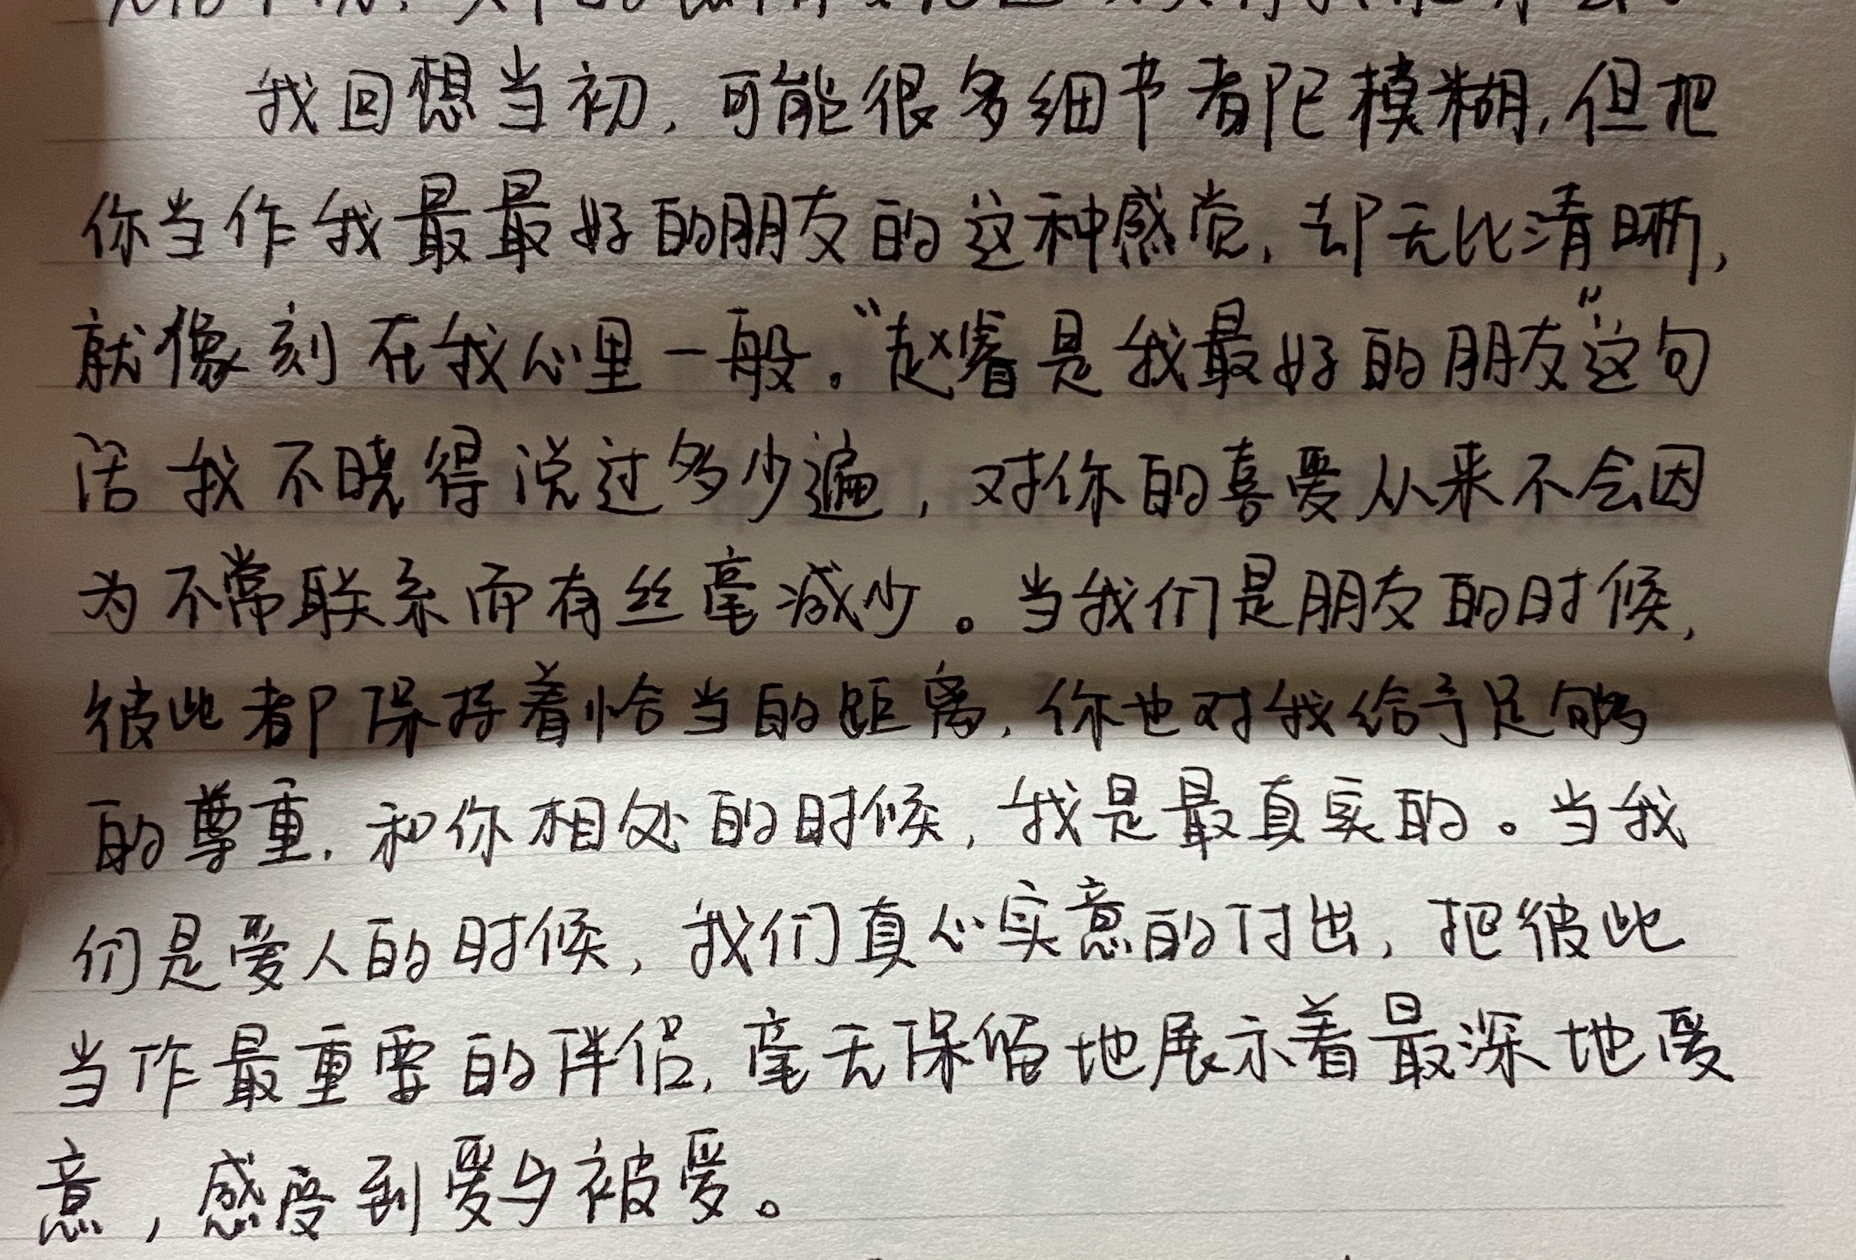 我回想当初，可能很多细节都已模糊，但把
你当作我最最好的朋友的这种感觉，却无比清晰，
就像刻在我心里一般。“赵睿是我最好的朋友”这句
话我不晓得说过多少遍，对你的喜爱从来不会因
为不常联系而有丝毫减少。当我们是朋友的时候，
彼此都保持着恰当的距离，你也对我给予足够
的尊重，和你相处的时候，我是最真实的。当我
们是爱人的时候，我们真心实意的付出，把彼此
当作最重要的伴侣，毫无保留地展示着最深地爱
意，感受到爱与被爱。